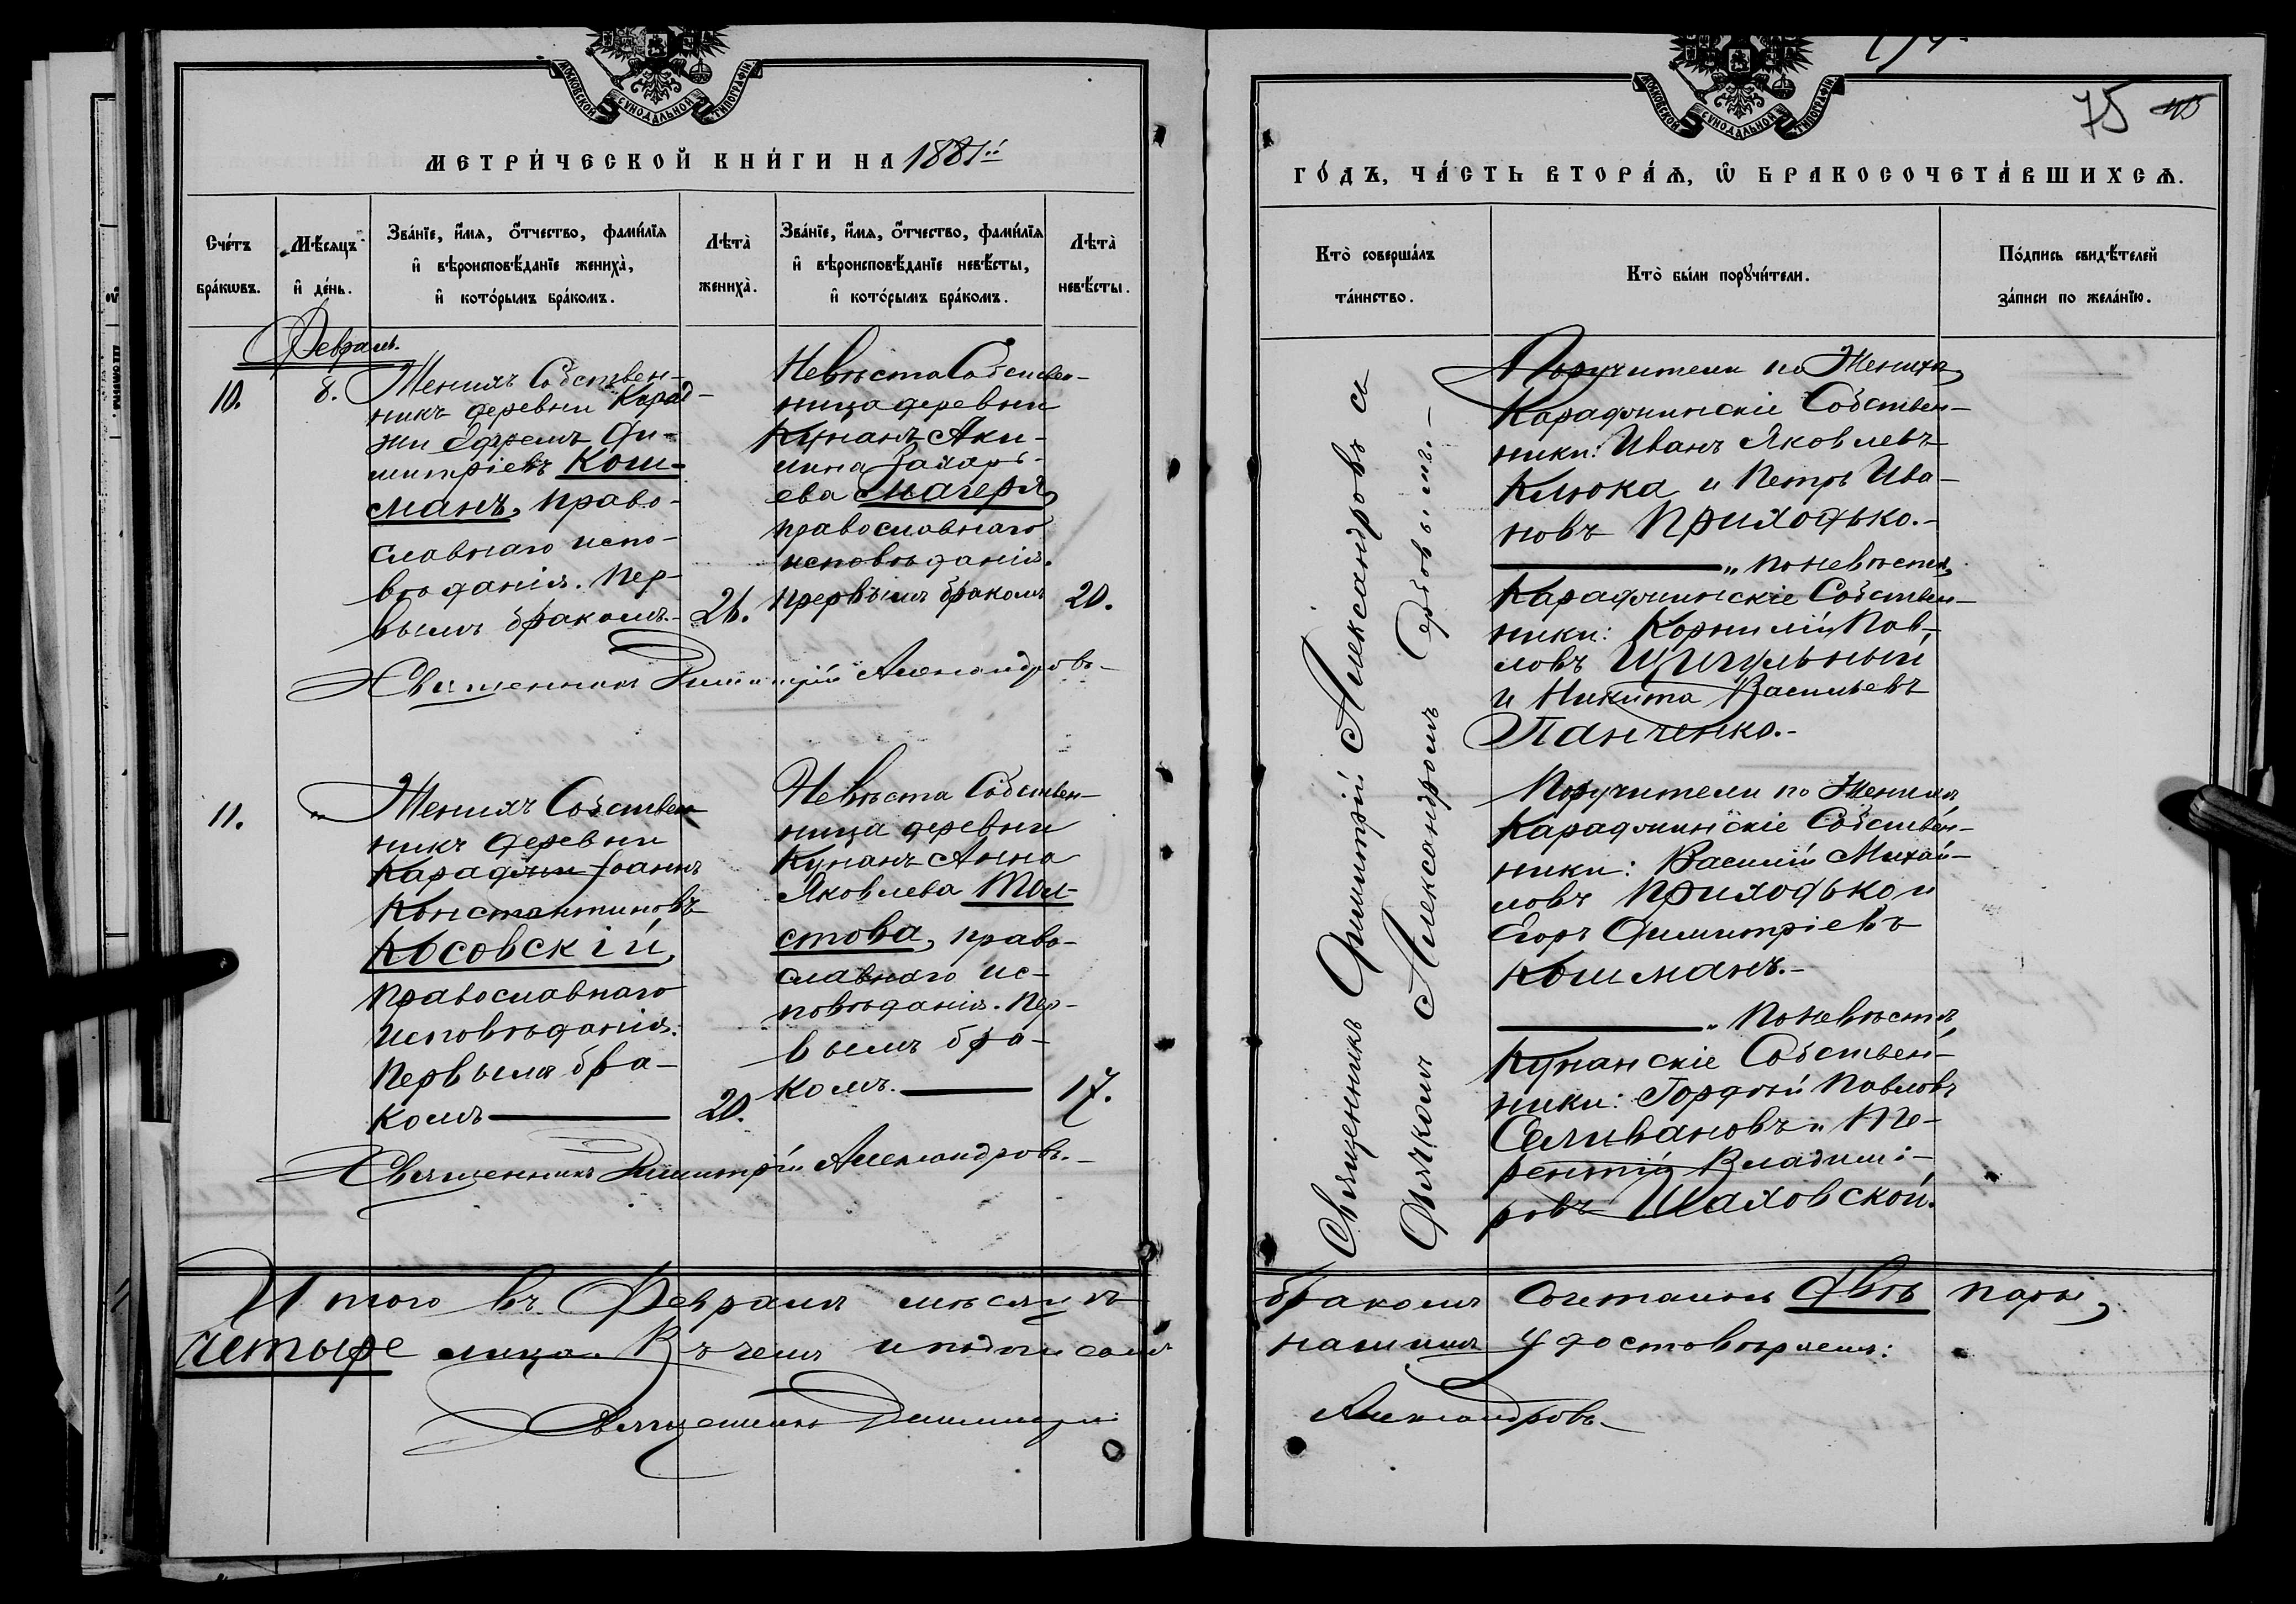 МОСКОВСКОЙ СУНОДАЛЬНОЙ ТИПОГРАФІИ
МЕТРИ́ЧЕСКОЙ КНИ́ГИ НА 1881й
Сче́тъ бра́кѡвъ.
Мѣ́сяцъ и҆ де́нь.
Зва́нїе, и҆́мя, ѻ҆́тчество, фами́лїя и҆ вѣроисповѣ́данїе жениха̀, и҆ кото́рымъ бра́комъ.
Лѣта̀ жениха̀.
Зва́нїе, и҆́мя, ѻ҆́тчество, фами́лїя и҆ вѣроисповѣ́данїе невѣ́сты, и҆ кото́рымъ бра́комъ.
Лѣта̀ невѣ́сты.
Февраль.
10.
8.
Женихъ Собствен-
никъ деревни Карад-
жи Ефремъ Ди-
митріевъ Кош-
манъ, право-
славнаго испо-
вѣданія. Пер-
вымъ бракомъ.-
26.
Невѣста Собствен-
ница деревни
Кунанъ Аки-
лина Захарь-
ева Магеря,
православнаго
исповѣданія.
Первымъ бракомъ
20.
Священникъ Димитрій Александровъ-
11.
"
Женихъ Собствен-
никъ деревни
Караджи Іоаннъ
Константиновъ
Косовскій,
Православнаго
исповѣданія.
Первымъ бра-
комъ
20.
Невѣста Собствен-
ница деревни
Кунанъ Анна
Яковлева Тол-
стова, право-
славнаго ис-
повѣданія. Пер-
вымъ бра-
комъ.
17.
Священникъ Димитрій Александровъ.-
Итого въ Февралѣ мѣсяцѣ
четыре лица. Въ чемъ и подписомъ
Священникъ Димитрій
МОСКОВСКОЙ СУНОДАЛЬНОЙ ТИПОГРАФІИ
75
ГО́ДЪ, ЧА́СТЬ ВТОРА́Ѧ, Ѽ БРАКОСОЧЕТА́ВШИХСѦ.
Кто̀ соверша́лъ та́инство.
Кто̀ бы́ли порꙋчи́тели.
По́дпись свидѣ́телей за́писи по жела́нїю.
Священникъ Димитрій Александровъ съ
Дьякомъ Александромъ Сербовымъ.-
Поручители по Женихѣ,
Караджинскіе Собствен-
ники: Иванъ Яковлевъ
Клюка и Петръ Ива-
новъ Приходько.-
" по невѣстѣ,
Караджинскіе Собствен-
ники: Корнилій Пав-
ловъ Щигульный
и Никита Васильевъ
Панченко.-
Поручители по Женихѣ
Караджинскіе Собствен-
ники: Василій Михай-
ловъ Приходько и
Егоръ Димитріевъ
Кошманъ.-
" По невѣстѣ,
Кунанскіе Собствен-
ники: Гордѣй Павловъ
Селивановъ и Те-
рентій Владимі-
ровъ Шаховской.
бракомъ сочетались двѣ пары,
нашимъ удостовѣряемъ:
Александровъ